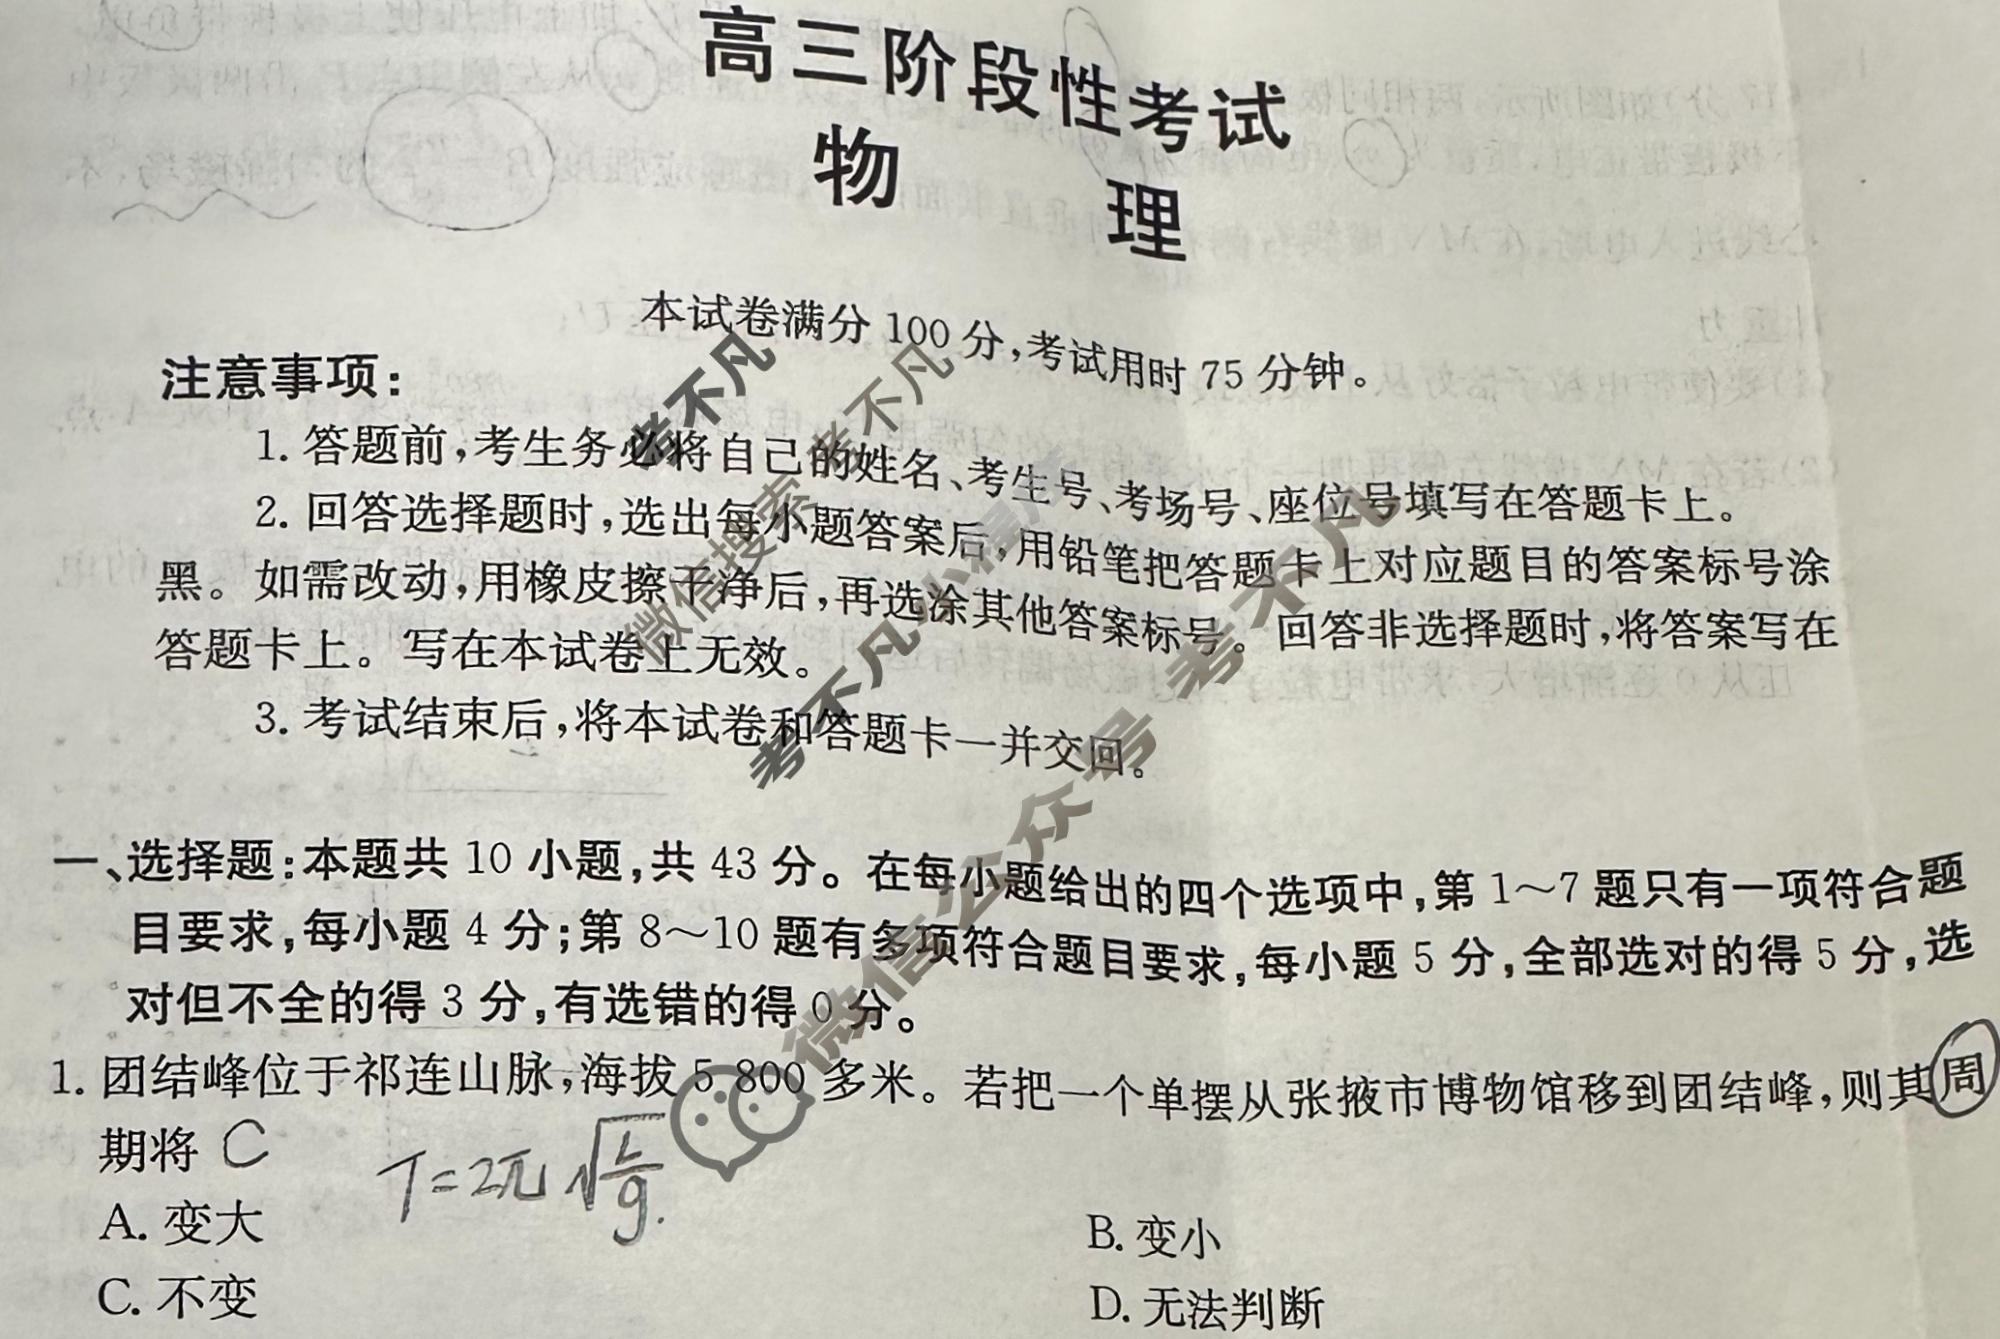 高三阶段性考试
物 理
本试卷满分 100 分,考试用时 75 分钟。
注意事项:
1. 答题前,考生务必将自己的姓名、考生号、考场号、座位号填写在答题卡上。
2. 回答选择题时,选出每小题答案后,用铅笔把答题卡上对应题目的答案标号涂
黑。如需改动,用橡皮擦干净后,再选涂其他答案标号。回答非选择题时,将答案写在
答题卡上。写在本试卷上无效。
3. 考试结束后,将本试卷和答题卡一并交回。
考不凡
考不凡
微信搜索
考不凡
考不凡
微信公众号
一、选择题:本题共 10 小题,共 43 分。在每小题给出的四个选项中,第 1～7 题只有一项符合题
目要求,每小题 4 分;第 8～10 题有多项符合题目要求,每小题 5 分,全部选对的得 5 分,选
对但不全的得 3 分,有选错的得 0 分。
1. 团结峰位于祁连山脉,海拔 5 800 多米。若把一个单摆从张掖市博物馆移到团结峰,则其周
期将 C
T=2π√(L/g).
A. 变大 B. 变小
C. 不变 D. 无法判断